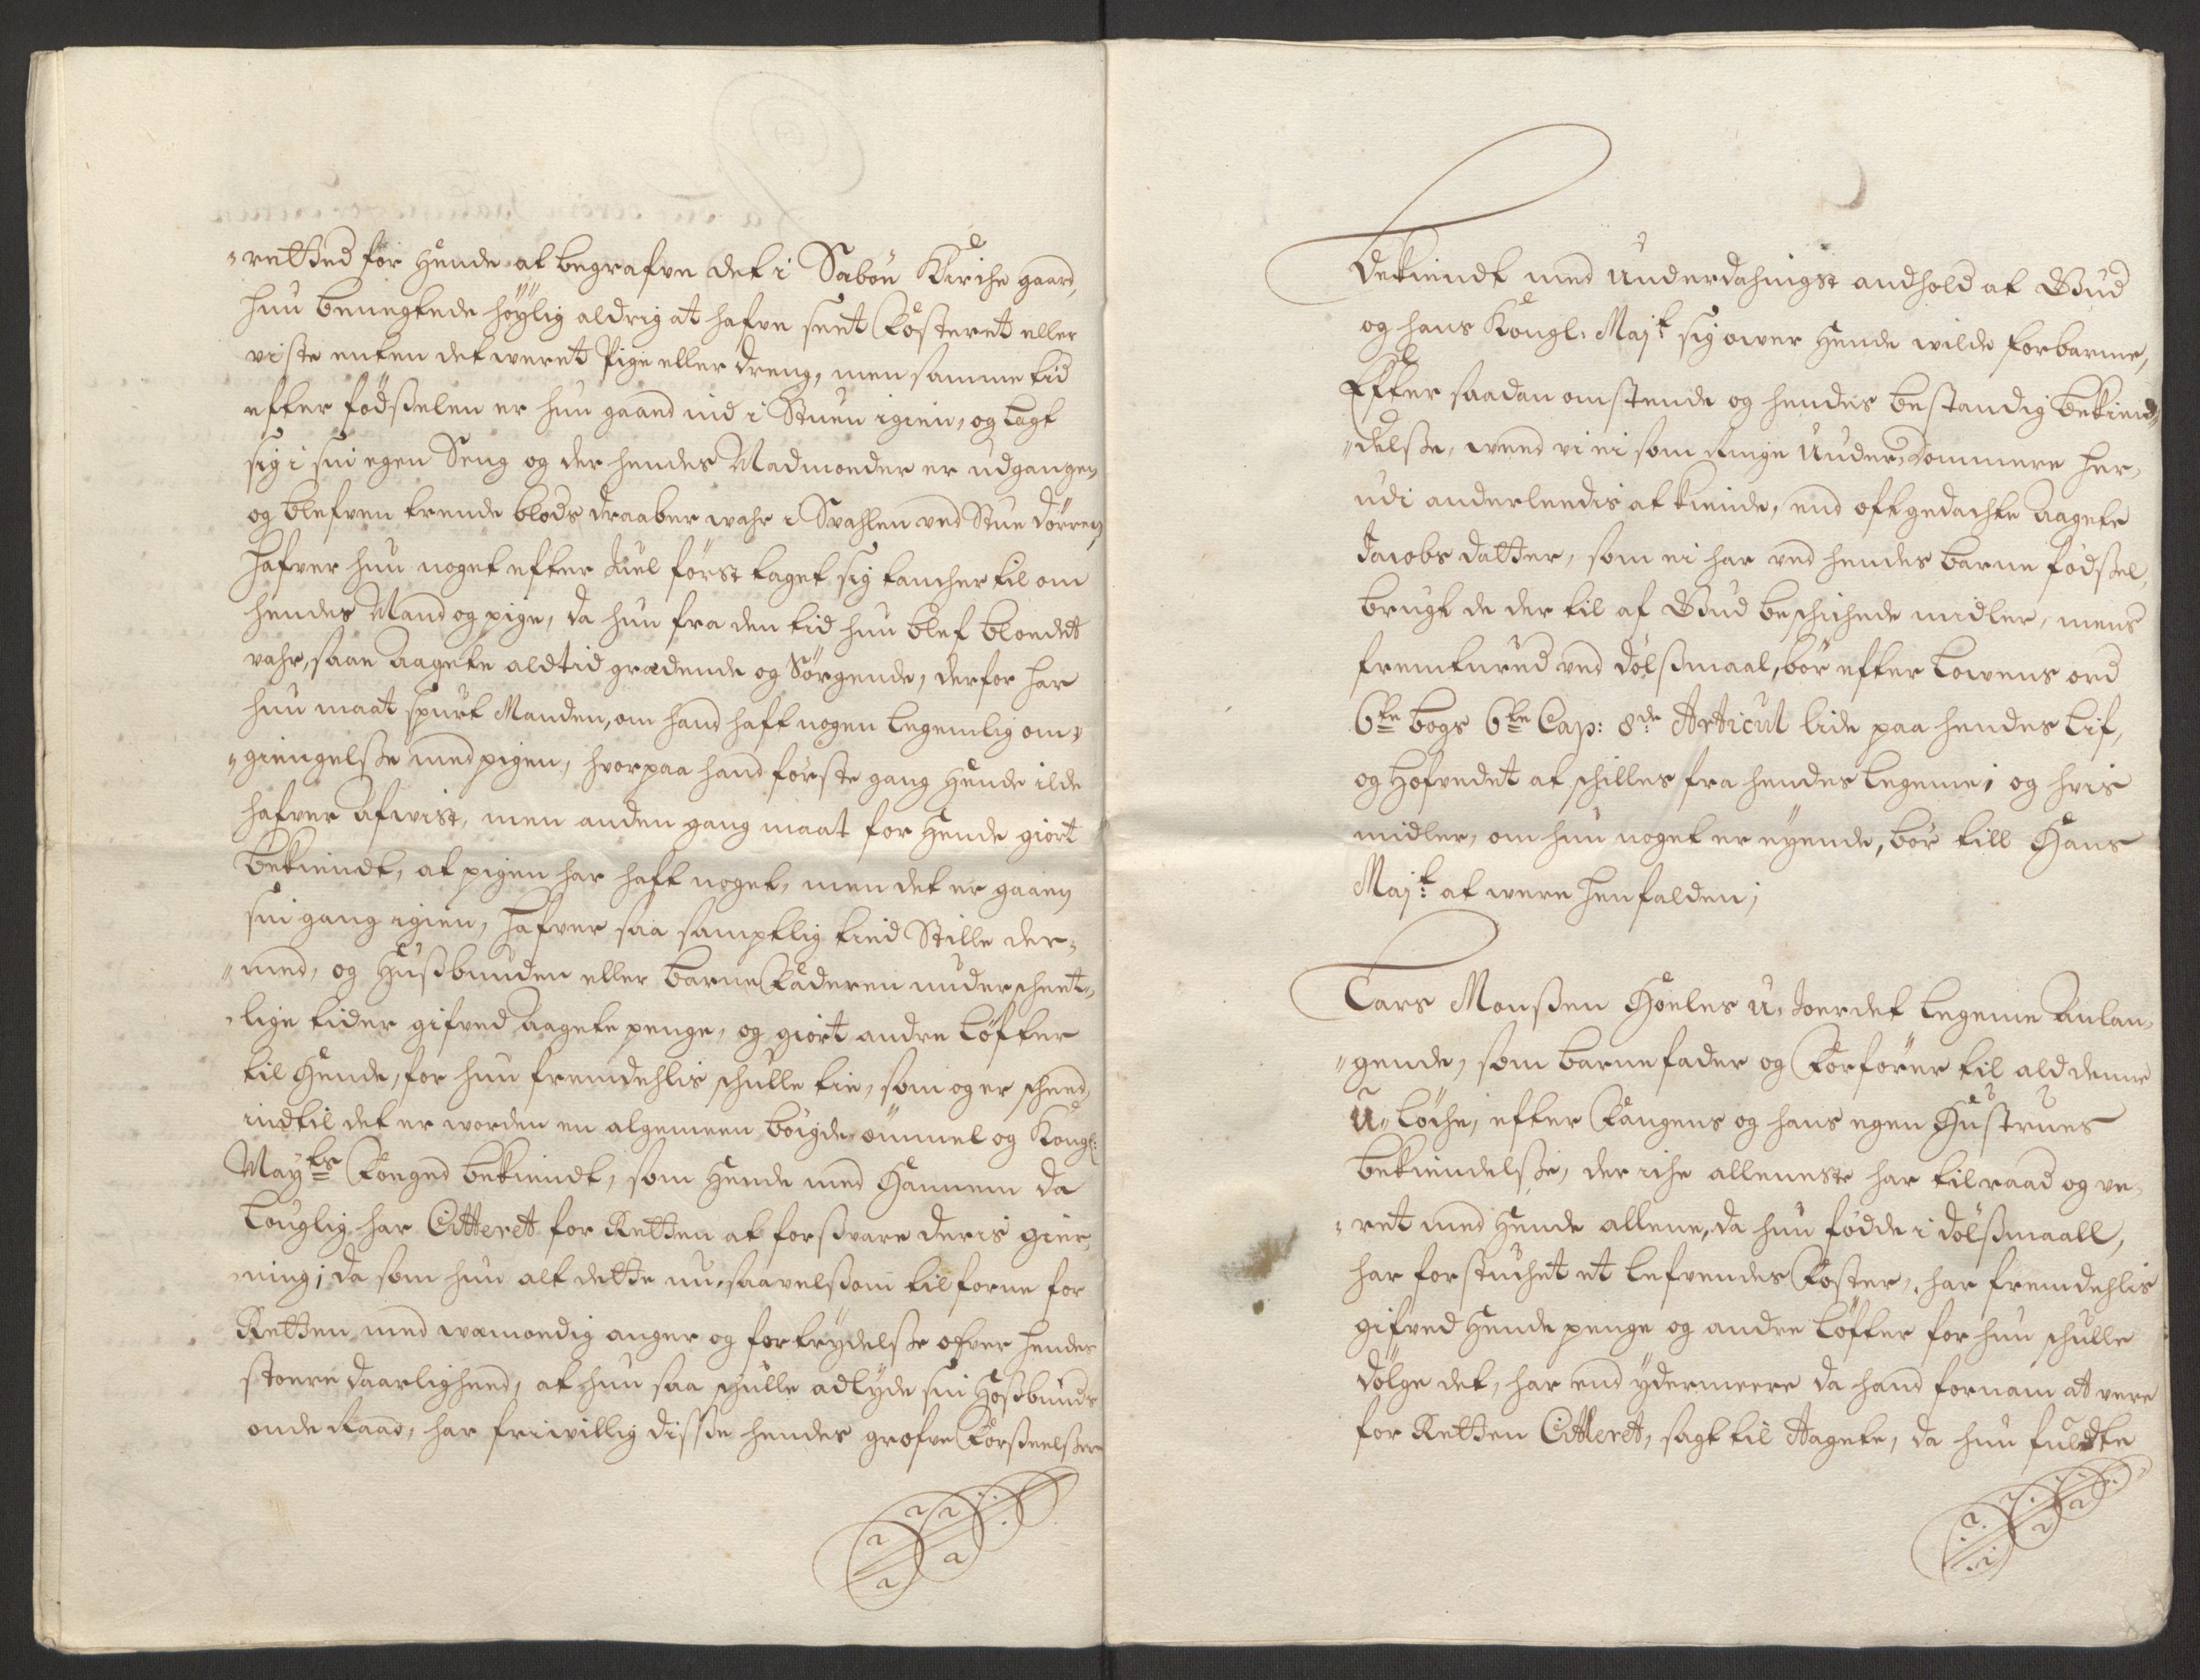 retted for Hende at begrafve det i Sabøe Kirche gaard,
huu benegtede høylig aldrig at hafve seet Fosteret eller
viste enten det weret Pige eller dreng, men samme tid
efter fødßelen er huu gaaed ind i Stuen igien, og lagt
sig i sin egen Seng og der hendes Madmoeder er udgangen,
og blefven trende blods draaber wahr i Svahlen ved Stue dørren,
hafver huu noget efter Juel først taget sig tancher til om
hendes Mand og pige, da huu fra den tid huu blef bloedet
vahr, saae Aagete altid grædende og Sørgende, derfor har
huu maat spurt Manden, om hand haft nogen legemlig om„
„giengelße med pigen, hvorpaa hand første gang Hende ilde
hafver Afvist, men anden gang maat for Hende giort
bekiendt, at pigen har haft noget, men det er gaaen
sin gang igien, hafver saa samptlig tied Stille der„
„med, og Hußbunden eller barne Faderen underscheet„
„lige tider gifved Aagete penge, og giort andre løfter
til Hende, for huu fremdehlis schulle tie, som og er scheed,
indtil det er worden en algemeen bøigde ømmel og Kongl:
Mayts Foeged bekiendt, som Hende med Hannem da
louglig har Citteret for Retten at forßvare deris gier„
„ning; da som huu alt dette nu, saavelßom tilforne for
Retten med wemoedig anger og fortrydelße ofver hendes
stoere daarlighed, at huu saa schulle adlyde sin Hoßbunds
onde Raad, har friwillig disse hendes grofve Forßeelßer
bekiendt med Underdahnigst andhold at Gud
og hans Kongl: Majt sig ower Hende wilde forbarme,
Effter saadan omstende og hendes bestandig bekiend„
„delße, weed vi ei som ringe Under Dommere her„
udi anderledis at kiende, end oftgedachte Aagete
Jacobs datter, som ei har ved hendes barne fødßel,
brugt de der til af Gud beschichede midler, mens
fremtured ved dølßmaal, bør efter Lowens ord
6te bogs 6te Cap: 8de Articul lide paa hendes lif,
og Hofvedet at schilles fra hendes legeme; og hvis
midler, om huu noget er eyende, bør till Hans
Majt: at were henfalden;
Lars Monßen Hoeles U„ Joerdet legeme Anlan„
„gende, som barnefader og Forfører til ald denne
U„ løche, efter Fangens og hans egen Hustrues
bekiendelße, der iche alleneste har tilraad og ve„
„ret med Hende allene, da huu fødde i dølßmaall,
har forstuchet et lefvendes Foster, har fremdehlis
gifved Hende penge og andre løfter for huu schulle
dølge det, har end ydermeere da hand fornam at vere
for Retten Citteret, sagt til Aagete, da huu fuldte